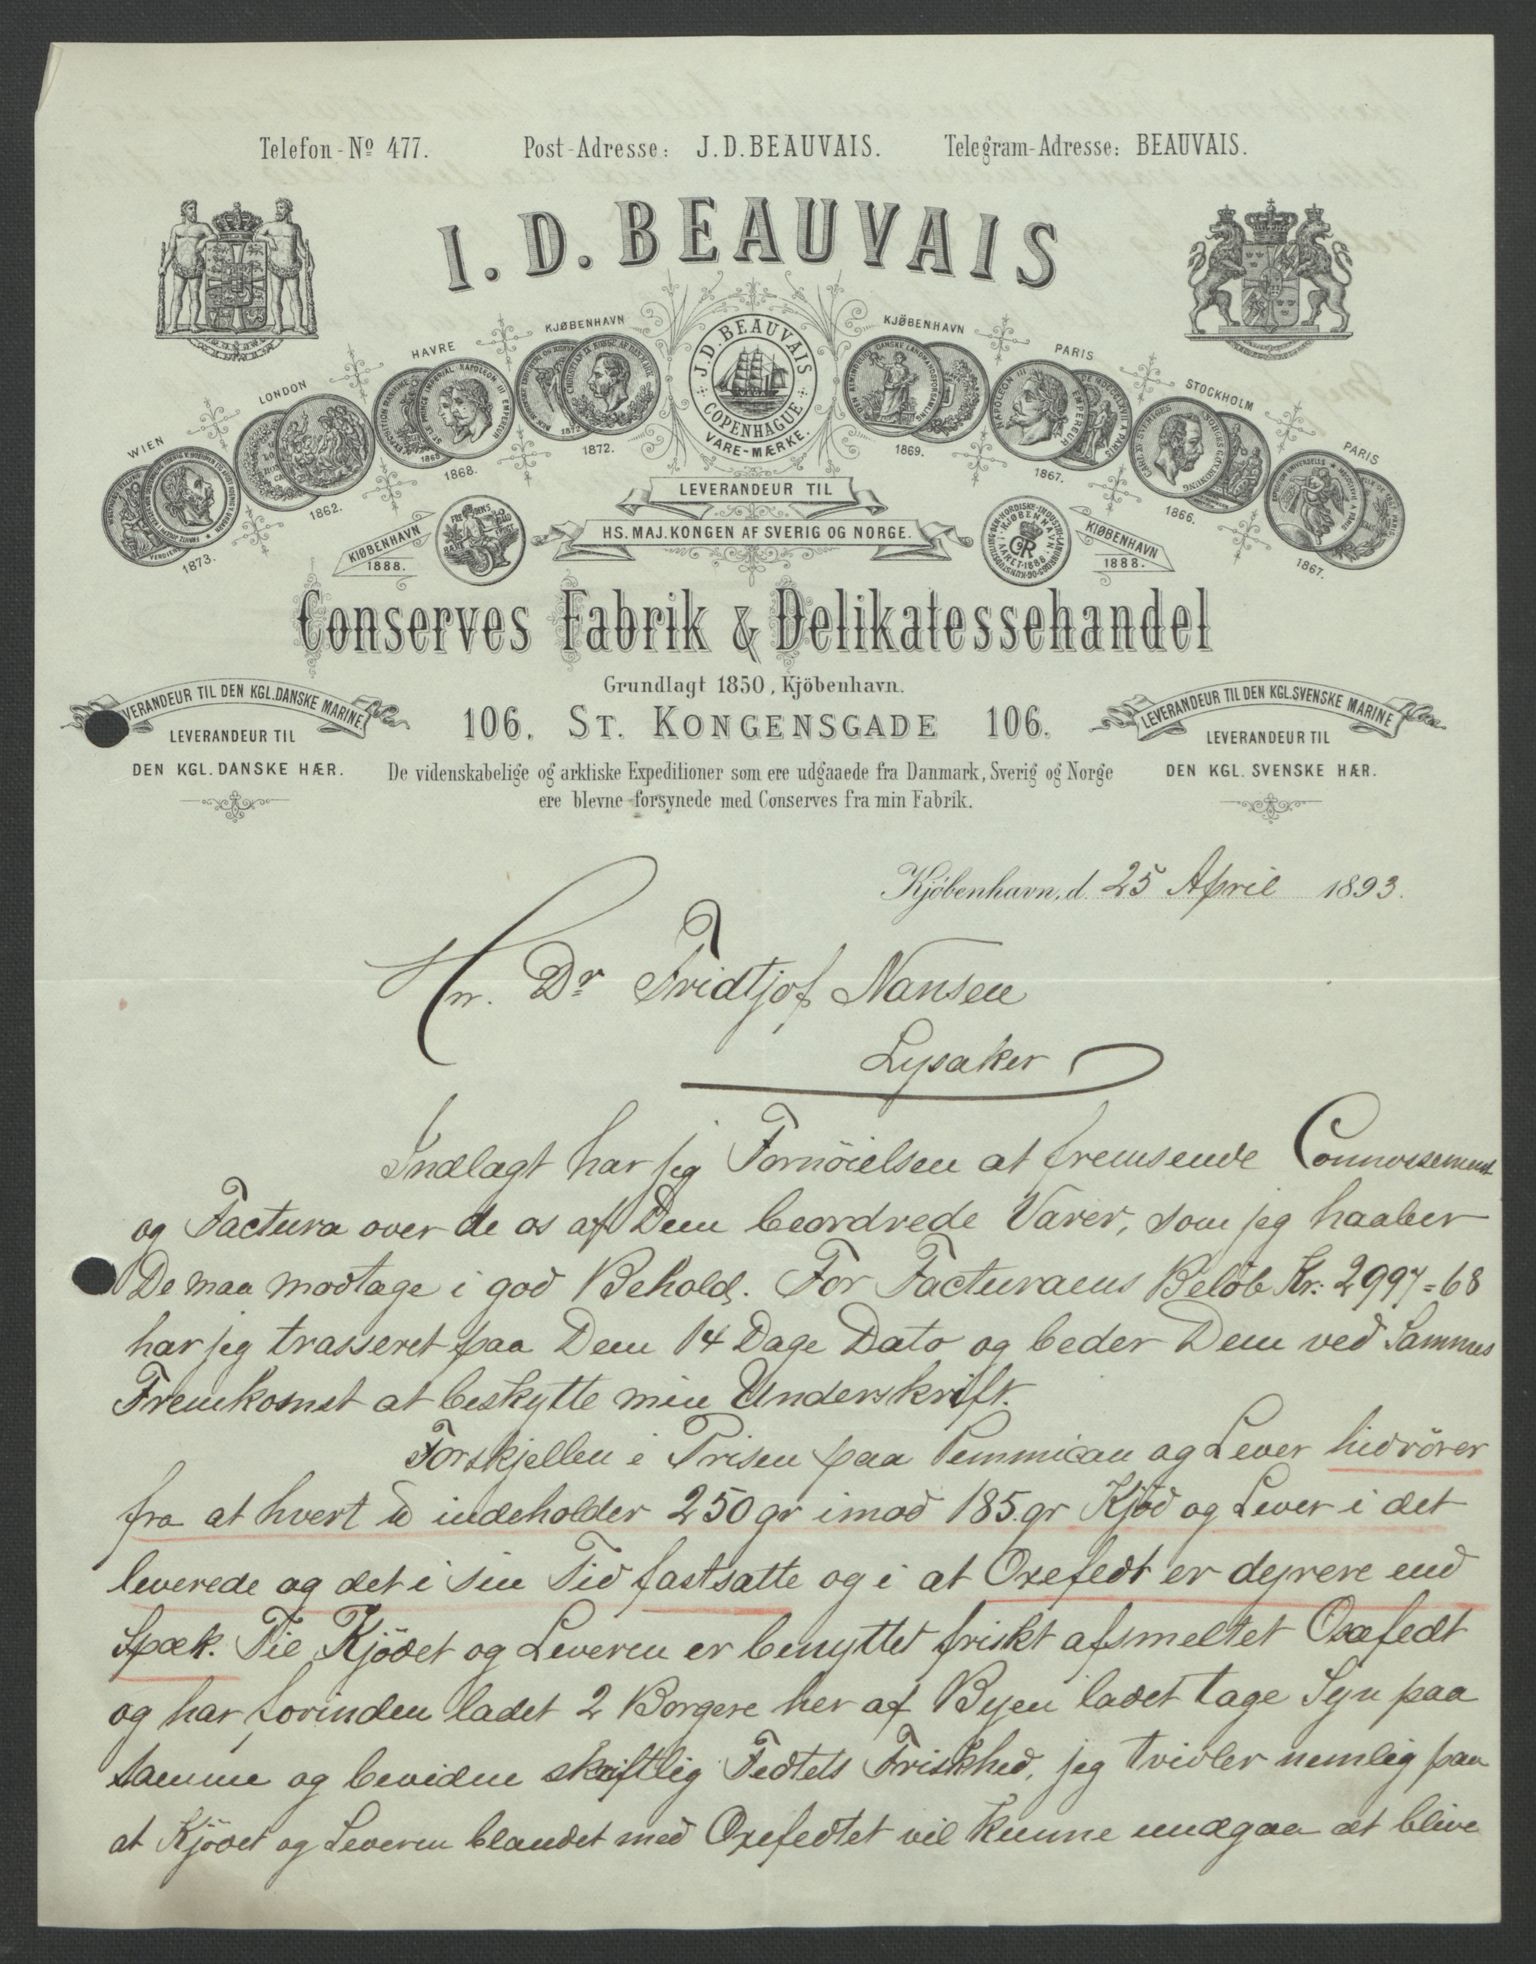 Telefon-Nº 477. Post-Adresse: J.D.BEAUVAIS. Telegram-Adresse: BEAUVAIS.
I. D. BEAUVAIS
WIEN
1873.
LONDON
1862.
HAVRE
1868.
KJØBENHAVN
1872.
J.D.BEAUVAIS
COPENHAGUE
VARE-MÆRKE.
KJØBENHAVN
1869.
PARIS
1867.
STOCKHOLM
1866.
PARIS
1867.
KIØBENHAVN
1888.
LEVERANDEUR TIL
HS. MAJ. KONGEN AF SVERIG OG NORGE.
KIØBENHAVN
1888.
Conserves Fabrik & Delikatessehandel
Grundlagt 1850, Kjöbenhavn.
106. ST. KONGENSGADE 106.
VERANDEUR TIL DEN KGL. DANSKE MARINE.
LEVERANDEUR TIL
DEN KGL. DANSKE HÆR.
LEVERANDEUR TIL DEN KGL. SVENSKE MARINE
LEVERANDEUR TIL
DEN KGL. SVENSKE HÆR.
De videnskabelige og arktiske Expeditioner som ere udgaaede fra Danmark, Sverig og Norge
ere blevne forsynede med Conserves fra min Fabrik.
Kjöbenhavn, d. 25 April 1893.
Hr. Dr Fridtjof Nansen
Lysaker
Indlagt har jeg Fornöielsen at fremsende Connossement
og Factura over de os af Dem beordrede Varer, som jeg haaber
De maa modtage i god Behold. For Facturaens Belöb Kr: 2997=68
har jeg trasseret paa Dem 14 Dage Dato og beder Dem ved Sammes
Fremkomst at beskytte min Underskrift.
Forskjellen i Prisen paa Pemmican og Lever hidrörer
fra at hvert ℔ indeholder 250 gr imod 185. gr Kjöd og Lever i det
leverede og det i sin Tid fastsatte og i at Oxefedt er dyrere end
Spæk. Til Kjödet og Leveren er benyttet friskt afsmeltet Oxefedt
og har forinden ladet 2 Borgere her af Byen ladet tage Syn paa
samme og bevidne skriftlig Fedtets Friskhed, jeg tvivler nemlig paa
at Kjödet og Leveren blandet med Oxefedtet vil kunne undgaa at blive